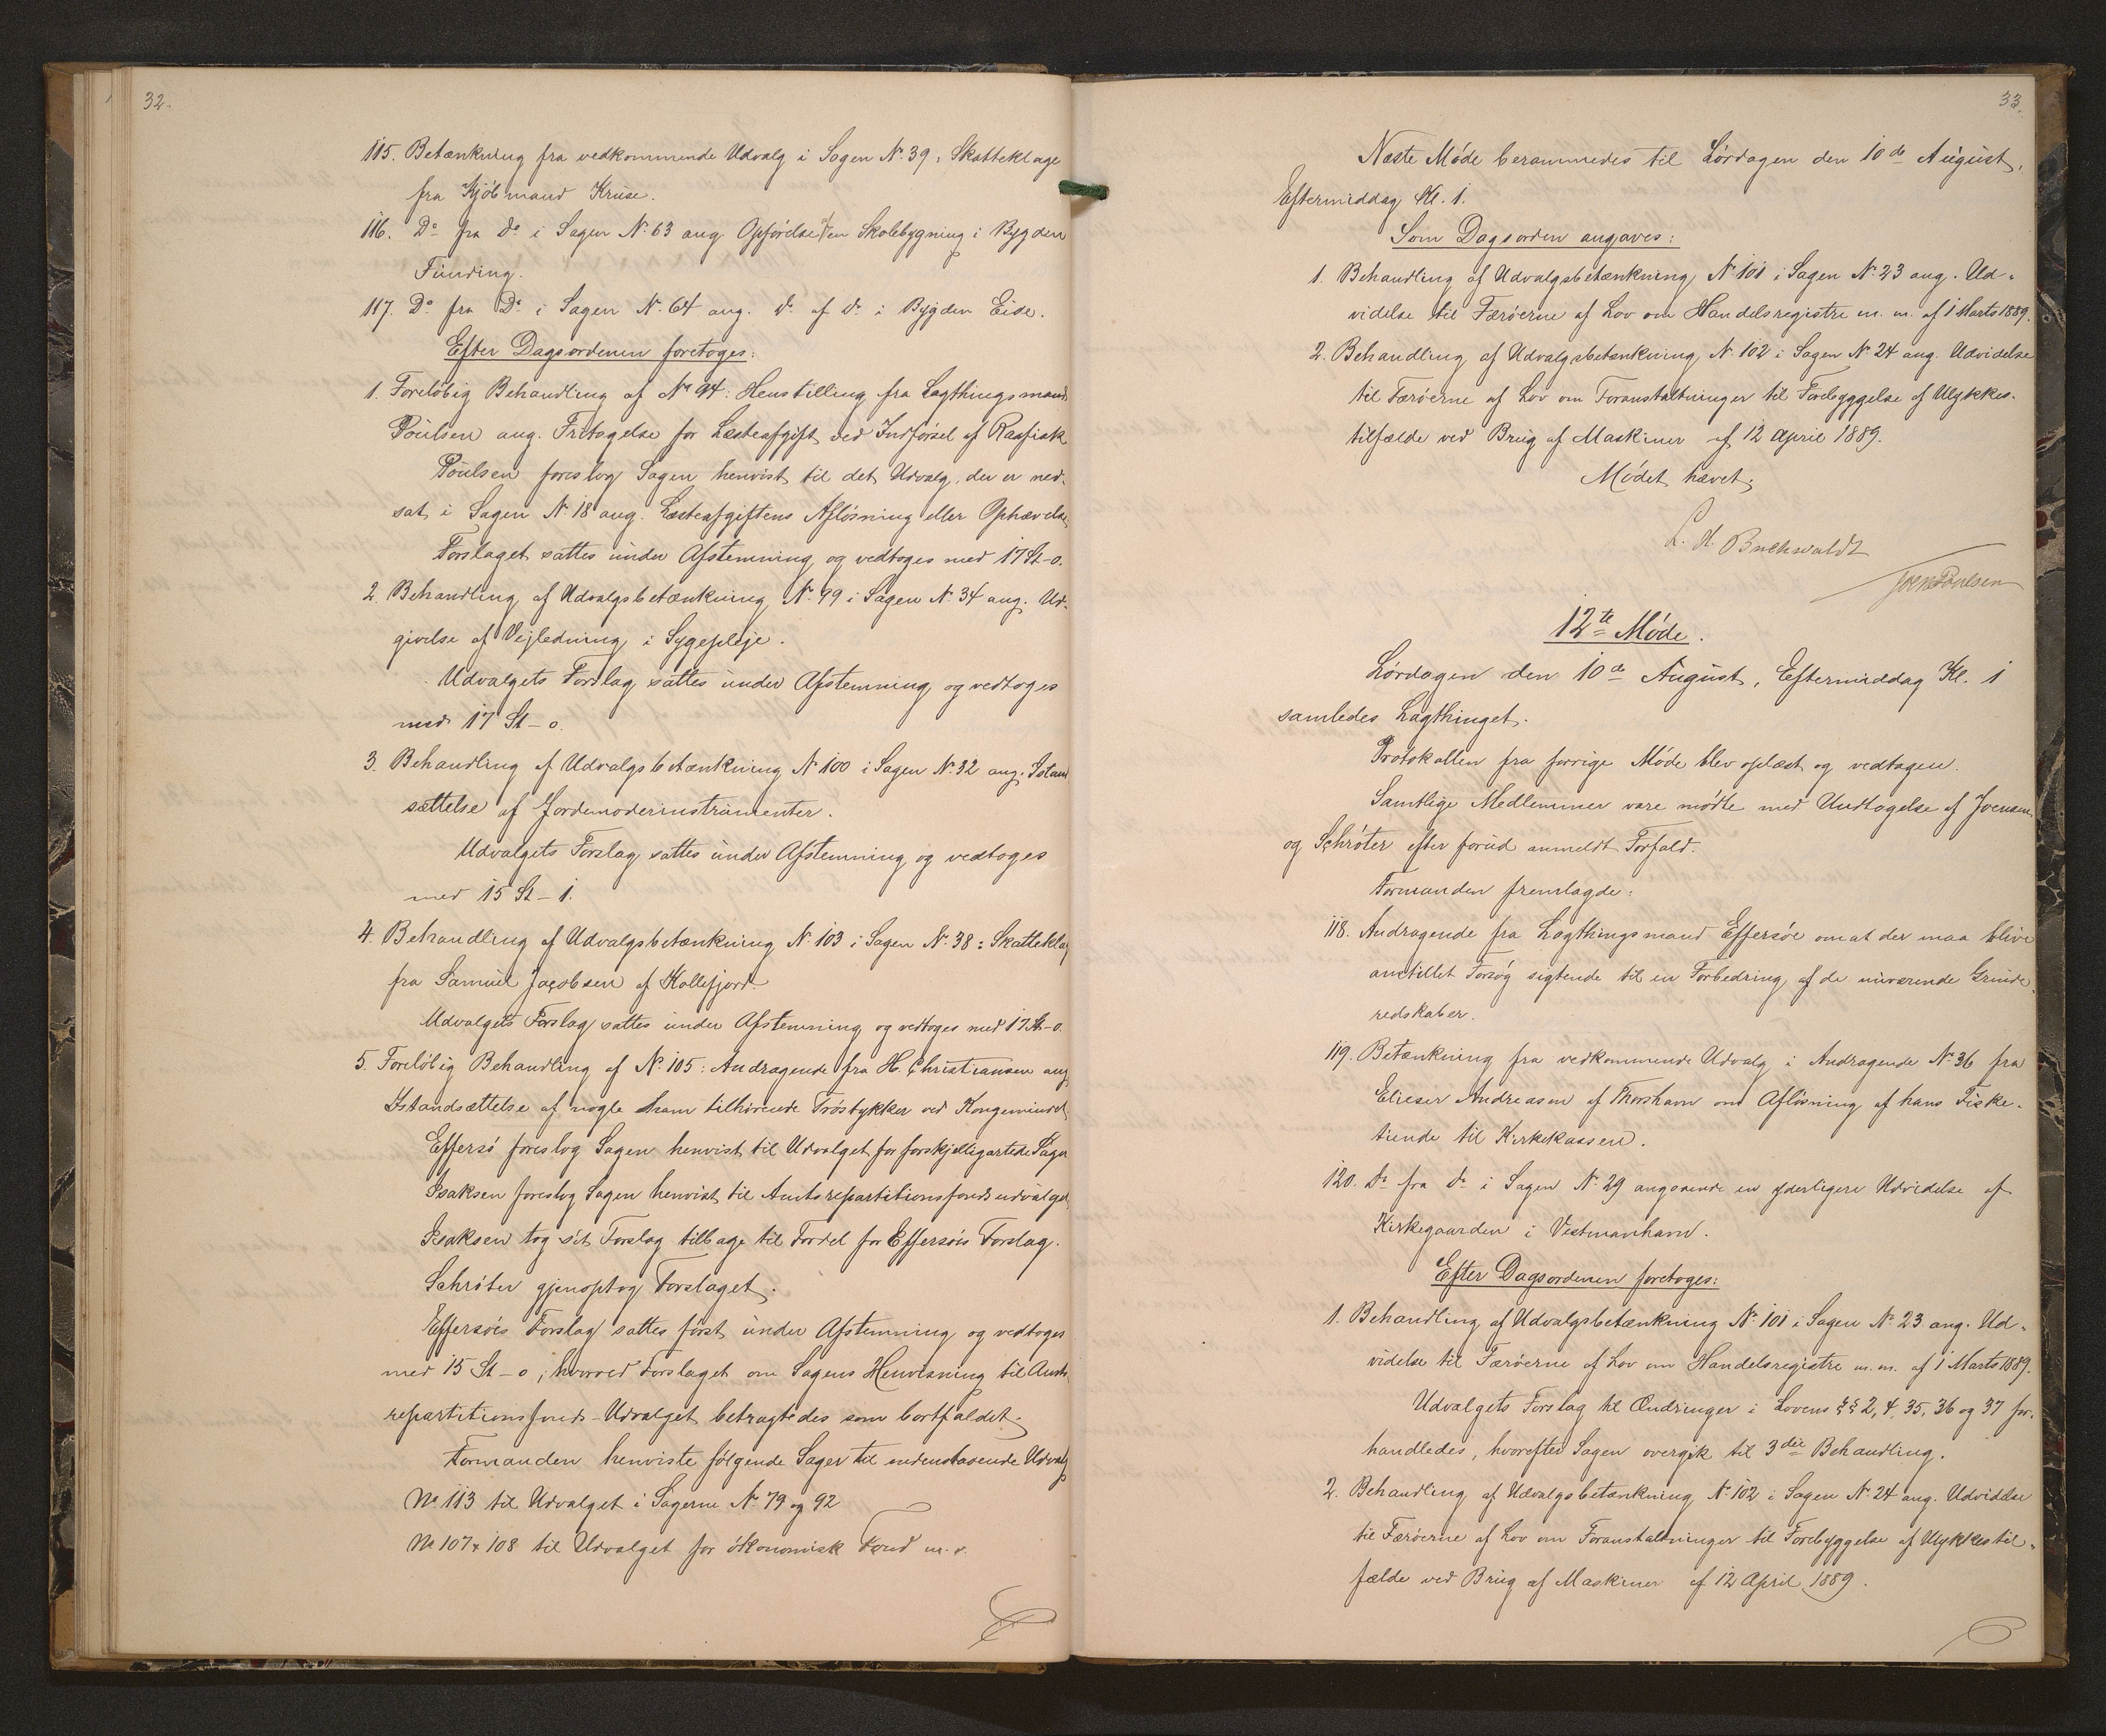 32.
115. Betænkning fra vedkommende Udvalg i Sagen No 39, Skatteklage
fra Kjøbmand Kruse.
116. Do fra do i Sagen No 63 ang. Opførelse af en Skolebygning i Bygden
Funding.
117. Do fra Do i Sagen No 64 ang. do af do i Bygden Eide.
Efter Dagsordenen foretoges:
1. Foreløbig Behandling af No 94: Henstilling fra Lagthingsmand
Poulsen ang. Fritagelse for Læsteafgift ved Indførsel af Raafisk
Poulsen foreslog Sagen henvist til det Udvalg, der er ned-
sat i Sagen No 18 ang. Læsteafgiftens Afløsning eller Ophævelse
Forslaget sattes under Afstemning og vedtoges med 17 St - 0.
2. Behandling af Udvalgsbetænkning No 99 i Sagen No 34 ang. Ud-
givelse af Vejledning i Sygepleje.
Udvalgets Forslag sattes under Afstemning og vedtoges
med 17 St - 0.
3. Behandling af Udvalgsbetænkning No 100 i Sagen No 32 ang. Istand
sættelse af Jordemoderinstrumenter.
Udvalgets Forslag sattes under Afstemning og vedtoges
med 15 St - 1.
4. Behandling af Udvalgsbetænkning No 103 i Sagen No 38: Skatteklag
fra Samuel Jacobsen af Kollefjord.
Udvalgets Forslag sattes under Afstemning og vedtoges med 17 St - 0.
5. Foreløbig Behandling af No 105: Andragende fra H. Christiansen ang
Istandsættelse af nogle ham tilhørende Træstykker ved Kongeminde
Effersø foreslog Sagen henvist til Udvalget for forskjelligartede Sager
Isaksen foreslog Sagen henvist til Amtsrepartitionsfondsudvalget
Isaksen tog sit Forslag tilbage til Fordel for Effersøes Forslag.
Schrøter gjenoptog Forslaget.
Effersøes Forslag sattes først under Afstemning og vedtoges
med 15 St - 0; hvorved Forslaget om Sagens Henvisning til Amts
repartitionsfonds-Udvalget betragtedes som bortfaldet.
Formanden henviste følgende Sager til nedenstaaende Udvalg
No 113 til Udvalget i Sagerne No 79 og 92
No 107 & 108 til Udvalget for økonomisk Fond m. v.
33.
Næste Møde berammedes til Lørdagen den 10de August,
Eftermiddag Kl. 1.
Som Dagsorden angaves:
1. Behandling af Udvalgsbetænkning No 101 i Sagen No 23 ang. Ud-
videlse til Færøerne af Lov om Handelsregistre m. m. af 1 Marts 1889.
2. Behandling af Udvalgsbetænkning No 102 i Sagen No 24 ang. Udvidelse
til Færøerne af Lov om Foranstaltninger til Forebyggelse af Ulykkes-
tilfælde ved Brug af Maskiner af 12 April 1889.
Mødet hævet.
C. A. Buchwaldt
Joen Poulsen
12te Møde.
Lørdagen den 10de August, Eftermiddag Kl. 1
samledes Lagthinget.
Protokollen fra forrige Møde blev oplæst og vedtagen.
Samtlige Medlemmer vare mødte med Undtagelse af Joensen
og Schrøter efter forud anmeldt Forfald.
Formanden fremlagde:
118. Andragende fra Lagthingsmand Effersøe om at der maa blive
anstillet Forsøg sigtende til en Forbedring af de nuværende Grinde-
redskaber.
119. Betænkning fra vedkommende Udvalg i Andragende No 36 fra
Elieser Andreasen af Thorshavn om Afløsning af hans Fiske-
tiende til Kirkekassen.
120. Do fra do i Sagen No 29 angaaende en yderligere Udvidelse af
Kirkegaarden i Vestmanhavn.
Efter Dagsordenen foretoges:
1. Behandling af Udvalgsbetænkning No 101 i Sagen No 23 ang. Ud-
videlse til Færøerne af Lov om Handelsregistre m. m. af 1 Marts 1889.
Udvalgets Forslag til Ændringer i Lovens §§ 2, 4, 35, 36 og 37 for-
handledes, hvorefter Sagen overgik til 3die Behandling.
2. Behandling af Udvalgsbetænkning No 102 i Sagen No 24 ang. Udvidelse
til Færøerne af Lov om Foranstaltninger til Forebyggelse af Ulykkestil-
fælde ved Brug af Maskiner af 12 April 1889.